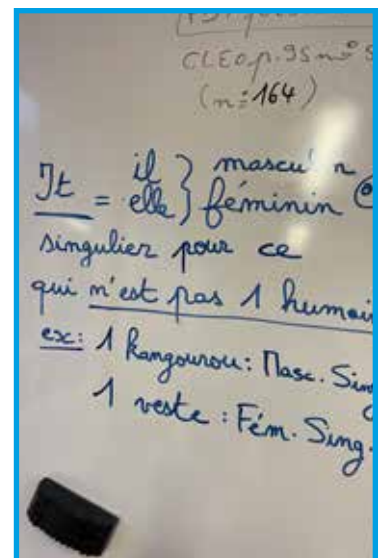 CLEO p.95 n°
(n=164)
It = il } masculin
elle } féminin
singulier pour ce
qui n'est pas 1 humain
ex: 1 Kangourou: Masc. Sing
1 veste : Fém. Sing.